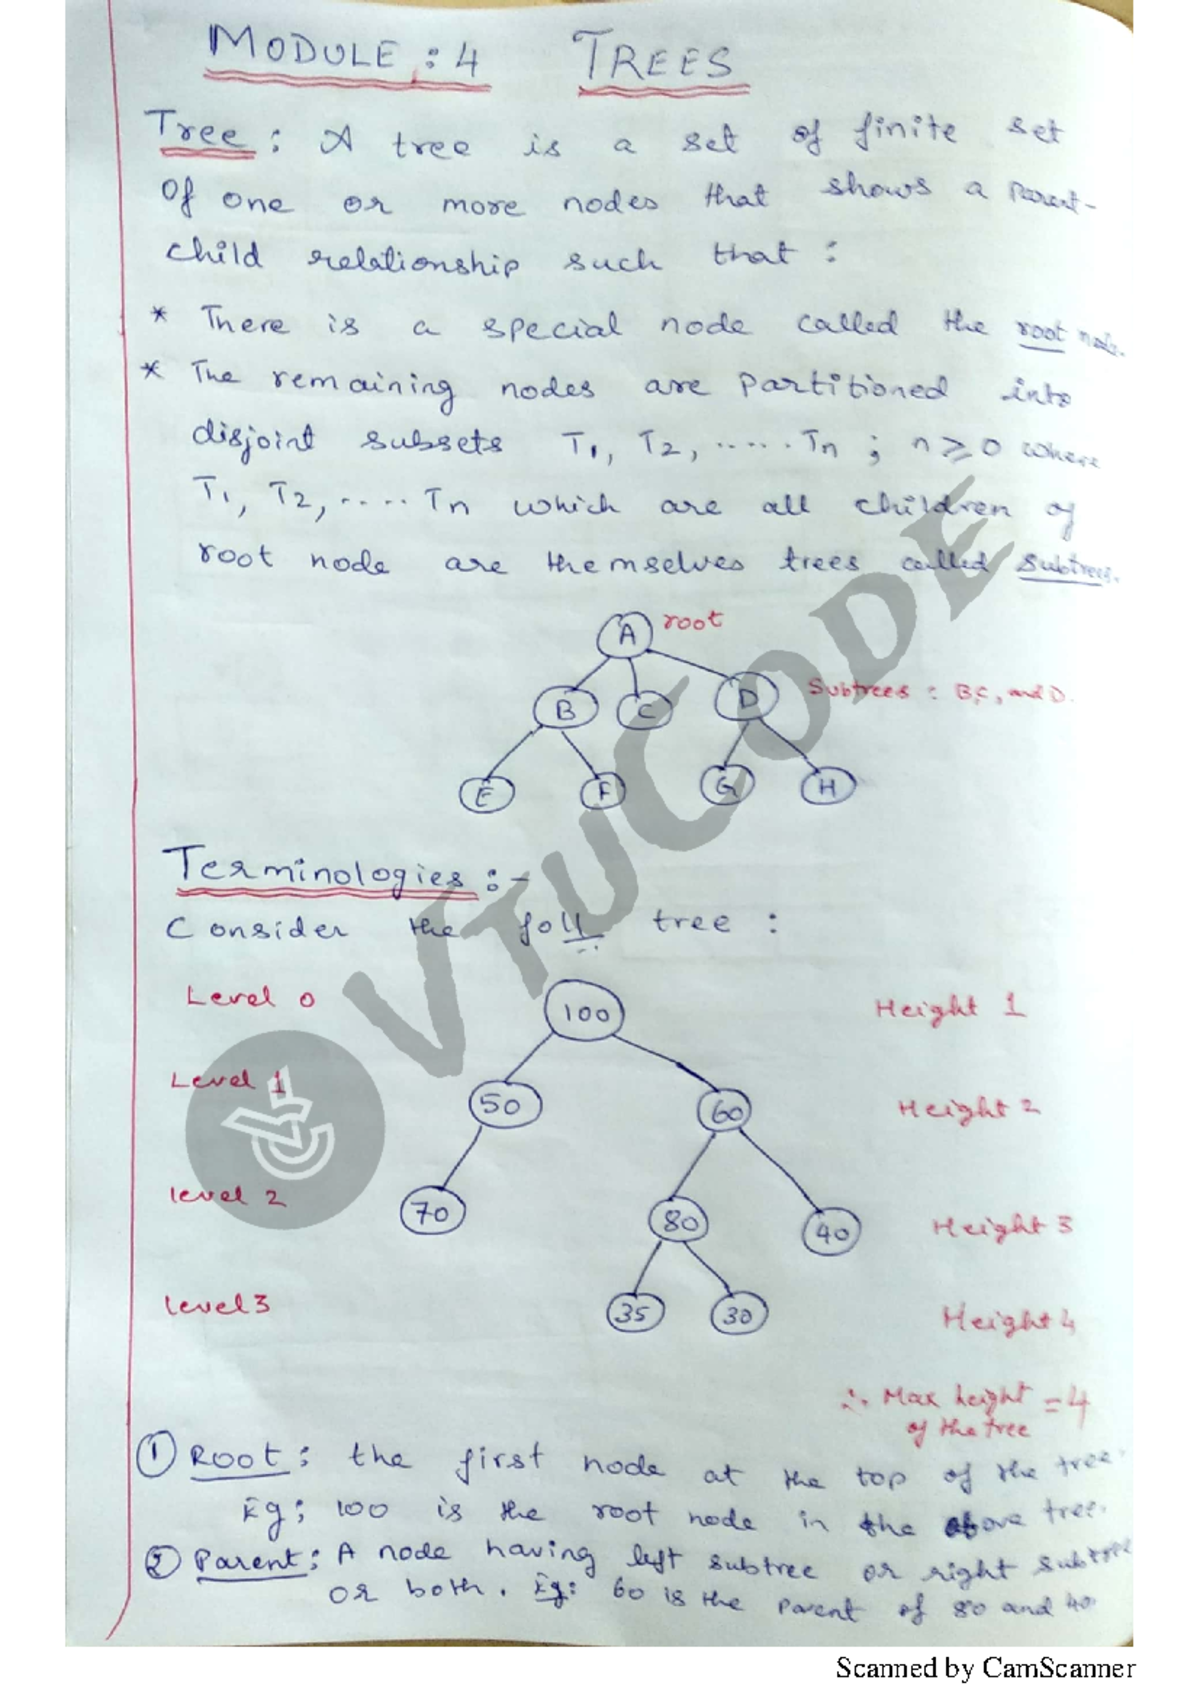 MODULE : 4 TREES
Tree : A tree is a set of finite set
of one or more nodes that shows a parent-
child relationship such that :
* There is a special node called the root node.
* The remaining nodes are partitioned into
disjoint subsets T1, T2, ..... Tn ; n ≥ 0 where
T1, T2, ..... Tn which are all children of
root node are themselves trees called subtrees.
A root
B C D Subtrees : B, C, and D.
E F G H
VTUCODE
Terminologies :-
Consider the foll tree :
Level 0 100 Height 1
Level 1 50 60 Height 2
level 2 70 80 40 Height 3
level 3 35 30 Height 4
∴ Max height = 4
of the tree
① Root : the first node at the top of the tree.
Eg; 100 is the root node in the above tree.
② Parent : A node having left subtree or right subtree
or both. Eg: 60 is the parent of 80 and 40.
Scanned by CamScanner